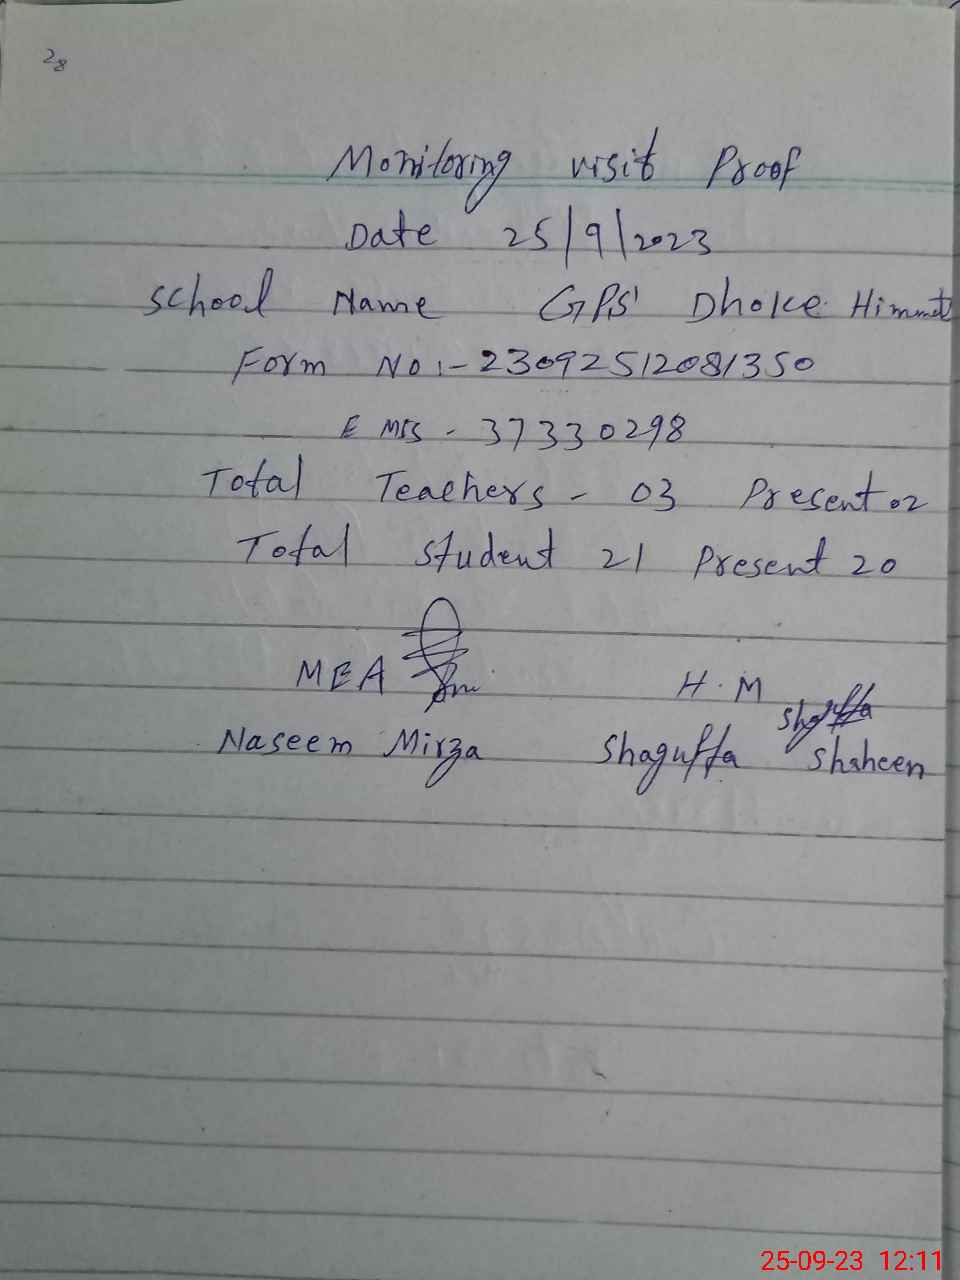 28
Monitoring visit Proof
Date 25/9/2023
School Name GPS Dhoke Himmat
Form No:- 23092512081350
E MIS - 37330298
Total Teachers - 03 Present 02
Total student 21 Present 20
MEA H.M
Shagufta
Naseem Mirza Shagufta Shaheen
25-09-23 12:11